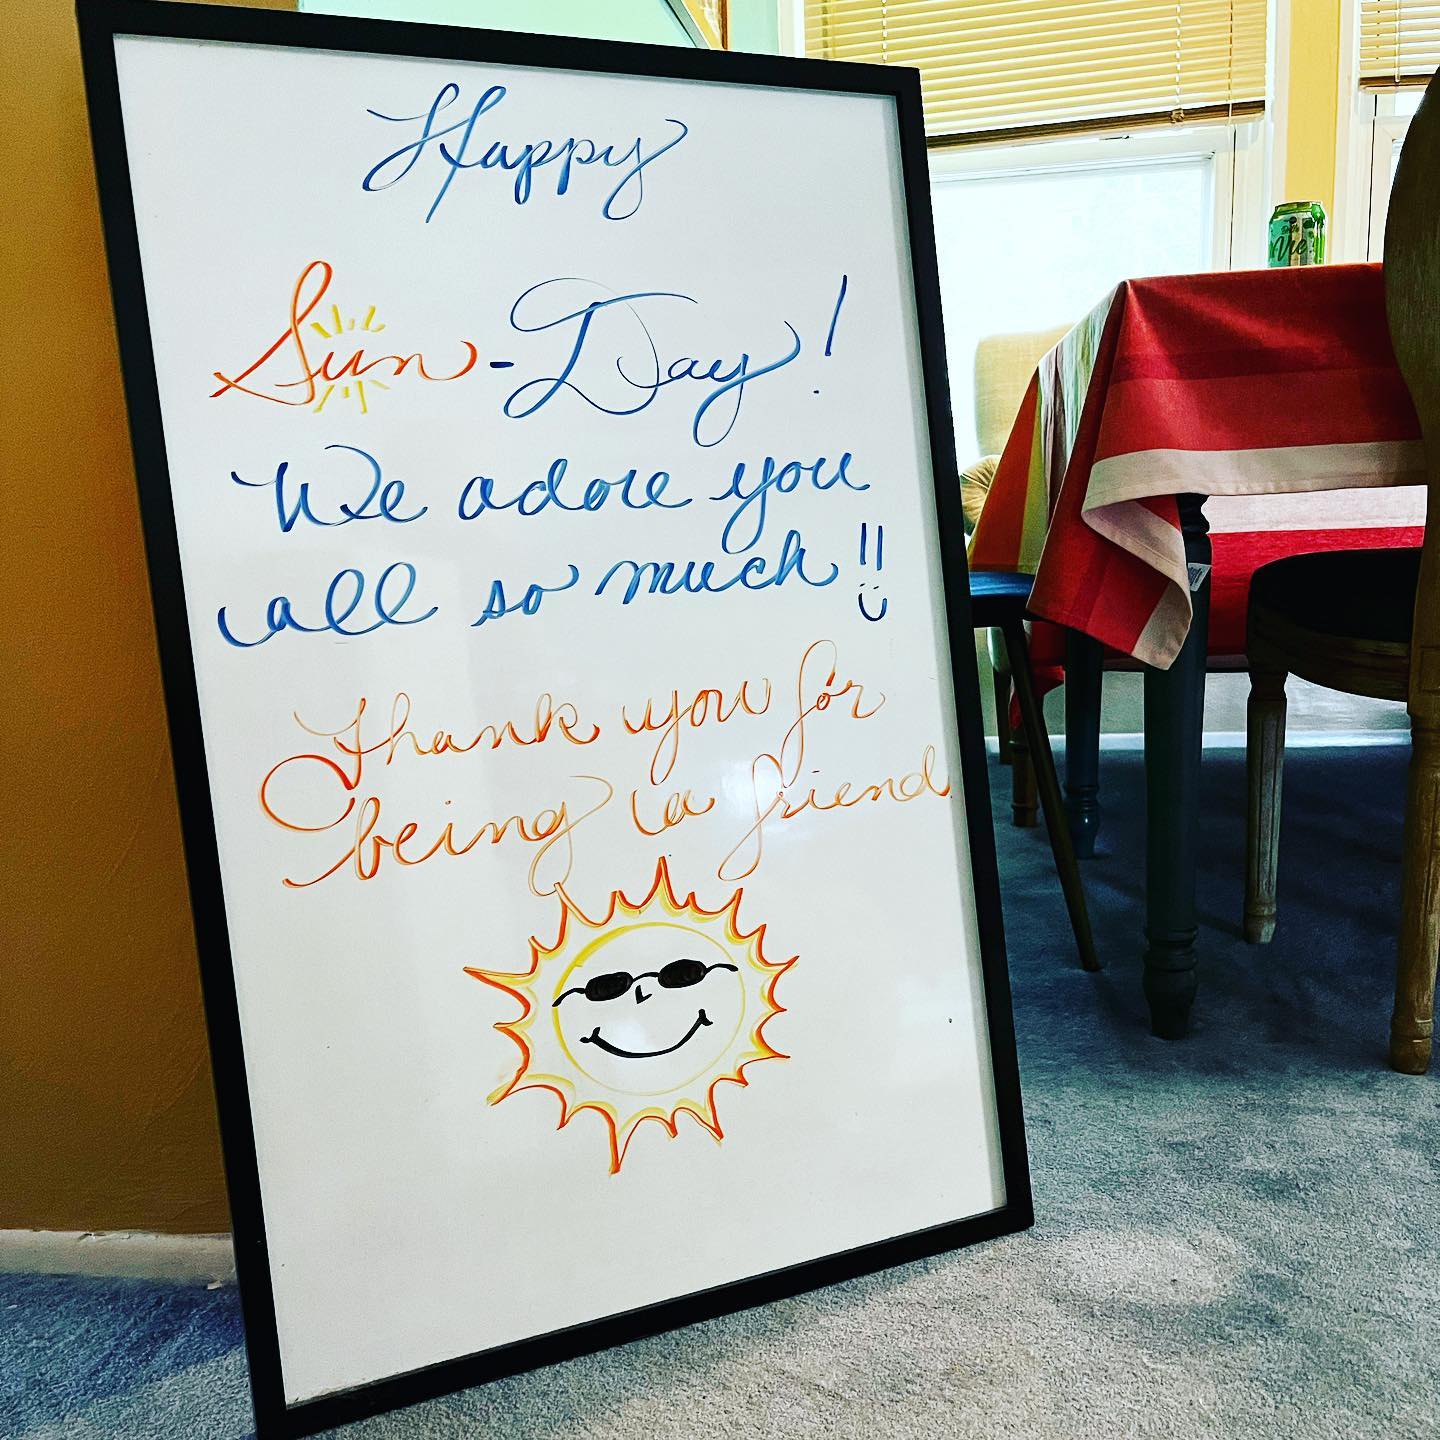 Happy
Sun-Day!
We adore you
all so much!!
Thank you for
being a friend
Vie